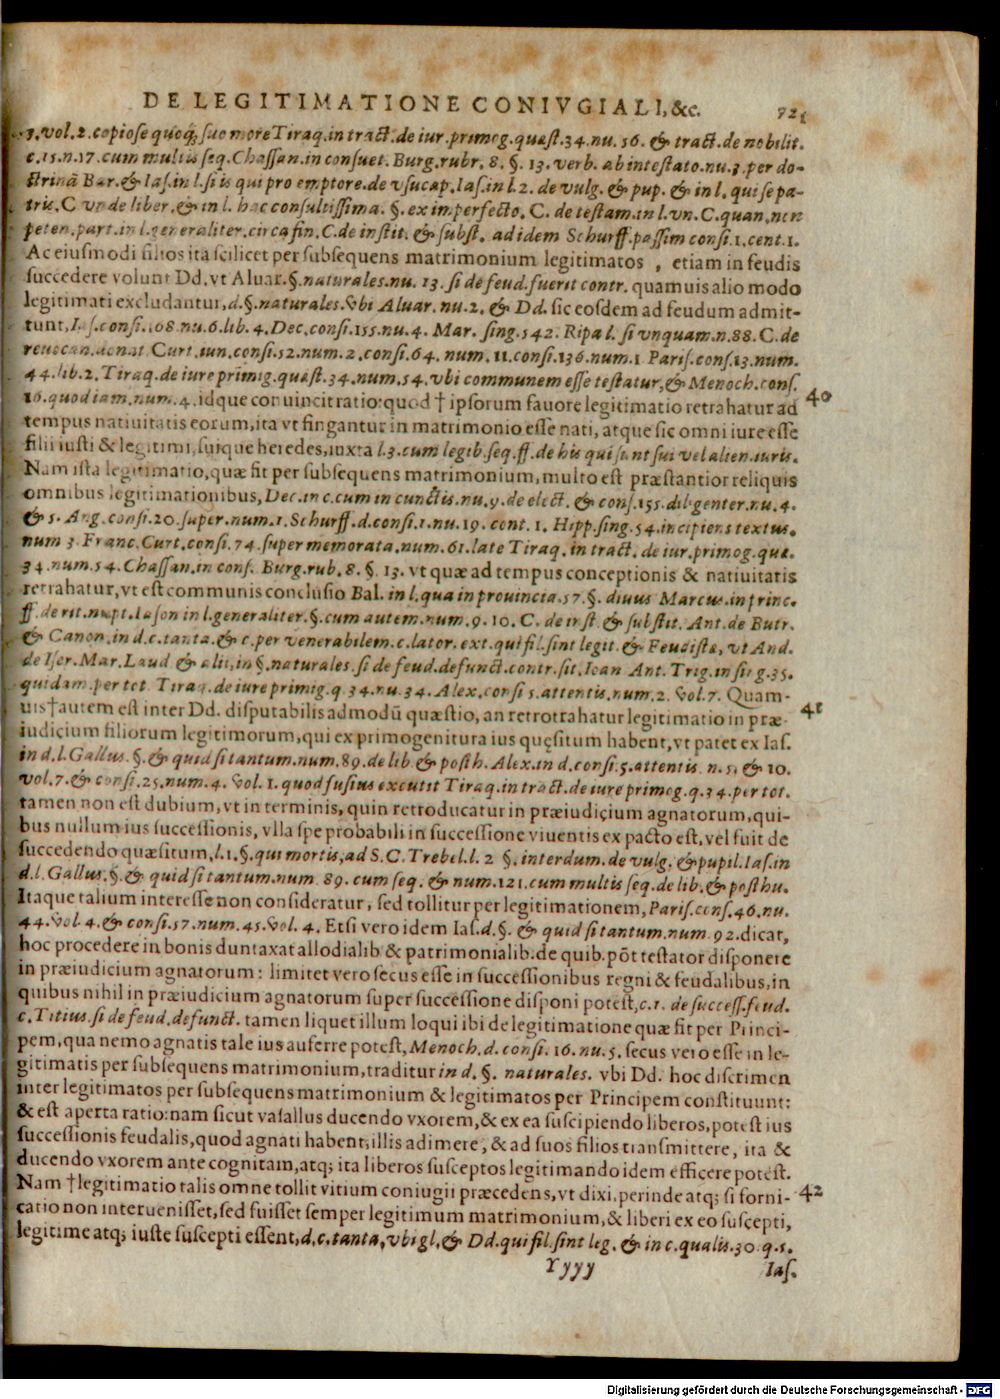 DE LEGITIMATIONE CONIVGIALI, &c. 721
3. vol. 2. copiose quoq; suo more Tiraq. in tract. de iur. primog. quæst. 34. nu. 56. & tract. de nobilit.
c. 15. n. 17. cum multis seq. Chassan. in consuet. Burg. rubr. 8. §. 13. verb. ab intestato. nu. 3. per do-
ctrinã Bar. & Ias. in l. si is qui pro emptore. de vsucap. Ias. in l. 2. de vulg. & pup. & in l. qui se pa-
tris. C vnde liber. & in l. hac consultissima. §. ex imperfecto. C. de testam. in l. vn. C. quan. non
peten. part. in l. generaliter. circa fin. C. de instit. & subst. ad idem Schurff. passim consi. 1. cent. 1.
Ac eiusmodi filios ita scilicet per subsequens matrimonium legitimatos, etiam in feudis
succedere volunt Dd. vt Aluar. §. naturales. nu. 13. si de feud. fuerit contr. quamuis alio modo
legitimati excludantur, d. §. naturales. vbi Aluar. nu. 2. & Dd. sic eosdem ad feudum admit-
tunt, Ias. consi. 108. nu. 6. lib. 4. Dec. consi. 155. nu. 4. Mar. sing. 542. Ripa l. si vnquam. n. 88. C. de
reuocan. donat Curt. iun. consi. 52. num. 2. consi. 64. num. 11. consi. 136. num. 1 Paris. cons. 13. num.
44. lib. 2. Tiraq. de iure primig. quæst. 34. num. 54. vbi communem esse testatur, & Menoch. cons.
16. quod iam. num. 4. idque conuincit ratio: quod † ipsorum fauore legitimatio retrahatur ad 40
tempus natiuitatis eorum, ita vt fingantur in matrimonio esse nati, atque sic omni iure esse
filii iusti & legitimi, suique heredes, iuxta l. 3. cum legib. seq. ff. de his qui sunt sui vel alien. iuris.
Nam ista legitimatio, quæ fit per subsequens matrimonium, multo est præstantior reliquis
omnibus legitimationibus, Dec. in c. cum in cunctis. nu. 9. de elect. & cons. 155. diligenter. nu. 4.
& 5. Ang. consi. 20. super. num. 1. Schurff. d. consi. 1. nu. 19. cent. 1. Hipp. sing. 54. incipiens textus.
num 3. Franc. Curt. consi. 74. super memorata. num. 61. late Tiraq. in tract. de iur. primog. quæ.
34. num. 54. Chassan. in cons. Burg. rub. 8. §. 13. vt quæ ad tempus conceptionis & natiuitatis
retrahatur, vt est communis conclusio Bal. in l. qua in prouincia. 57. §. diuus Marcus. in princ.
ff. de rit. nupt. Iason in l. generaliter. §. cum autem. num. 9. 10. C. de inst. & substit. Ant. de Butr.
& Canon. in d. c. tanta. & c. per venerabilem. c. lator. ext. qui fil. sint legit. & Feudistæ, vt And.
de Iser. Mar. Laud & alii, in §. naturales. si de feud. defunct. contr. sit. Ioan Ant. Trig. in sing. 35.
quidam. per tot. Tiraq. de iure primig. q. 34. nu. 34. Alex. consi 5. attentis. num. 2. vol. 7. Quam-
uis † autem est inter Dd. disputabilis admodũ quæstio, an retrotrahatur legitimatio in præ- 41
iudicium filiorum legitimorum, qui ex primogenitura ius quęsitum habent, vt patet ex Ias.
in d. l. Gallus. §. & quid si tantum. num. 89. de lib & posth. Alex. in d. consi. 5. attentis n. 5. & 10.
vol. 7. & consi. 25. num. 4. vol. 1. quod fusius excutit Tiraq. in tract. de iure primog. q. 34. per tot.
tamen non est dubium, vt in terminis, quin retroducatur in præiudicium agnatorum, qui-
bus nullum ius successionis, vlla spe probabili in successione viuentis ex pacto est, vel fuit de
succedendo quæsitum, l. 1. §. qui mortis, ad S. C. Trebel. l. 2 §. interdum. de vulg. & pupil. Ias. in
d. l. Gallus. §. & quid si tantum. num 89. cum seq. & num. 121. cum multis seq. de lib. & posthu.
Itaque talium interesse non consideratur, sed tollitur per legitimationem, Paris. cons. 46. nu.
44. vol. 4. & consi. 57. num. 45. vol. 4. Etsi vero idem Ias. d. §. & quid si tantum. num 92. dicat,
hoc procedere in bonis duntaxat allodialib. & patrimonialib. de quib. põt testator disponere
in præiudicium agnatorum: limitet vero secus esse in successionibus regni & feudalibus, in
quibus nihil in præiudicium agnatorum super successione disponi potest, c. 1. de success. feud.
c. Titius. si de feud. defunct. tamen liquet illum loqui ibi de legitimatione quæ fit per Princi-
pem, qua nemo agnatis tale ius auferre potest, Menoch. d. consi. 16. nu. 5. secus vero esse in le-
gitimatis per subsequens matrimonium, traditur in d. §. naturales. vbi Dd. hoc discrimen
inter legitimatos per subsequens matrimonium & legitimatos per Principem constituunt:
& est aperta ratio: nam sicut vasallus ducendo vxorem, & ex ea suscipiendo liberos, potest ius
successionis feudalis, quod agnati habent, illis adimere, & ad suos filios transmittere, ita &
ducendo vxorem ante cognitam, atq; ita liberos susceptos legitimando idem efficere potest.
Nam † legitimatio talis omne tollit vitium coniugii præcedens, vt dixi, perinde atq; si forni- 42
catio non interuenisset, sed fuisset semper legitimum matrimonium, & liberi ex eo suscepti,
legitime atq; iuste suscepti essent, d. c. tanta, vbi gl. & Dd. qui fil. sint leg. & in c. qualis. 30. q. 5.
Yyyy Ias.
Digitalisierung gefördert durch die Deutsche Forschungsgemeinschaft - DFG